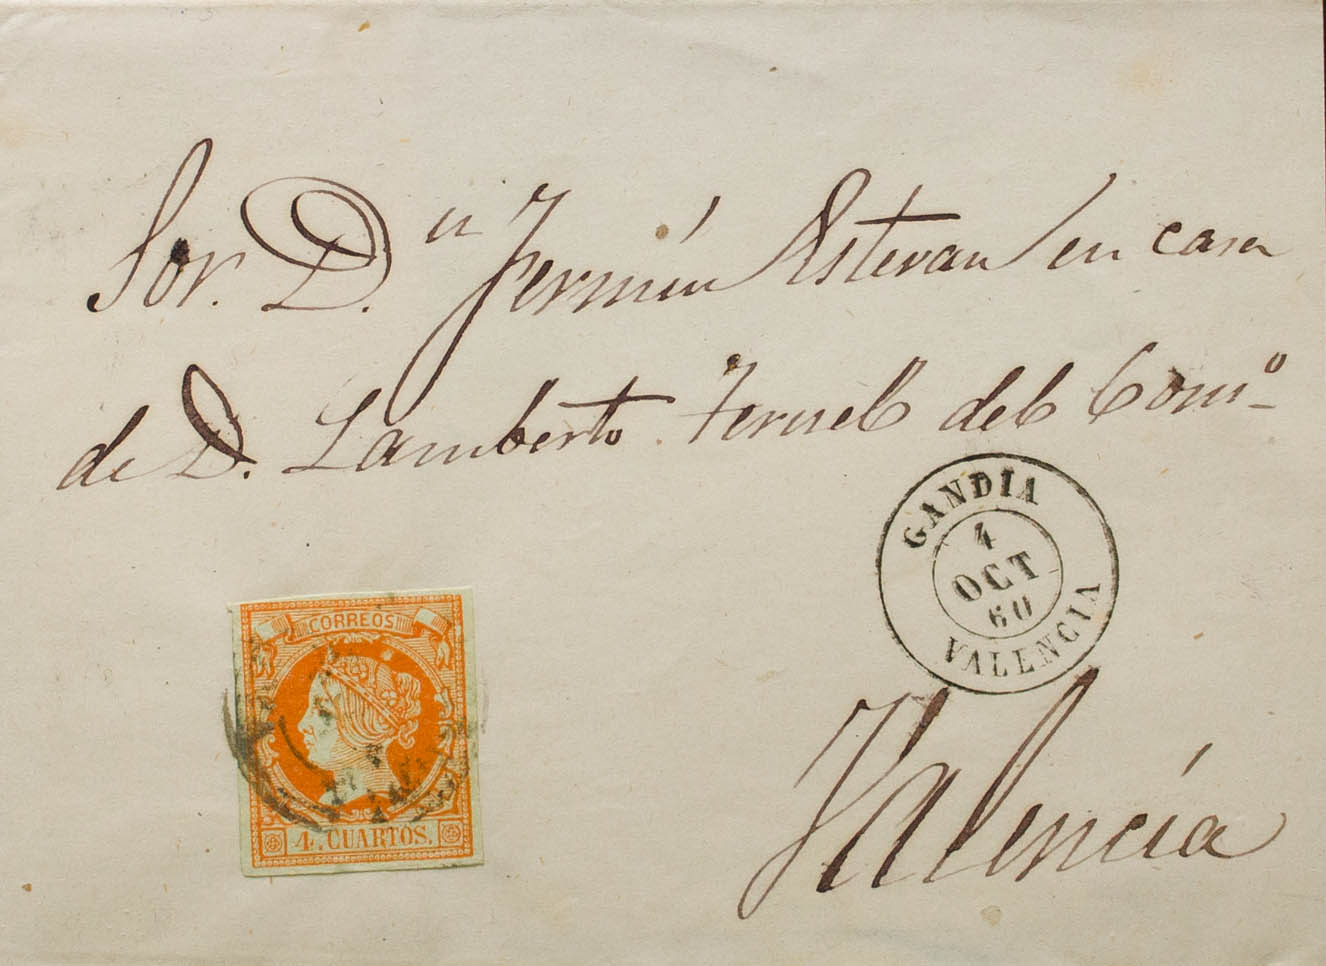 Sor. D.ⁿ Fermín Estevan en casa
de D. Lamberto Teruel del Comº
GANDIA
4
OCT
60
VALENCIA
CORREOS
4. CUARTOS.
Valencia